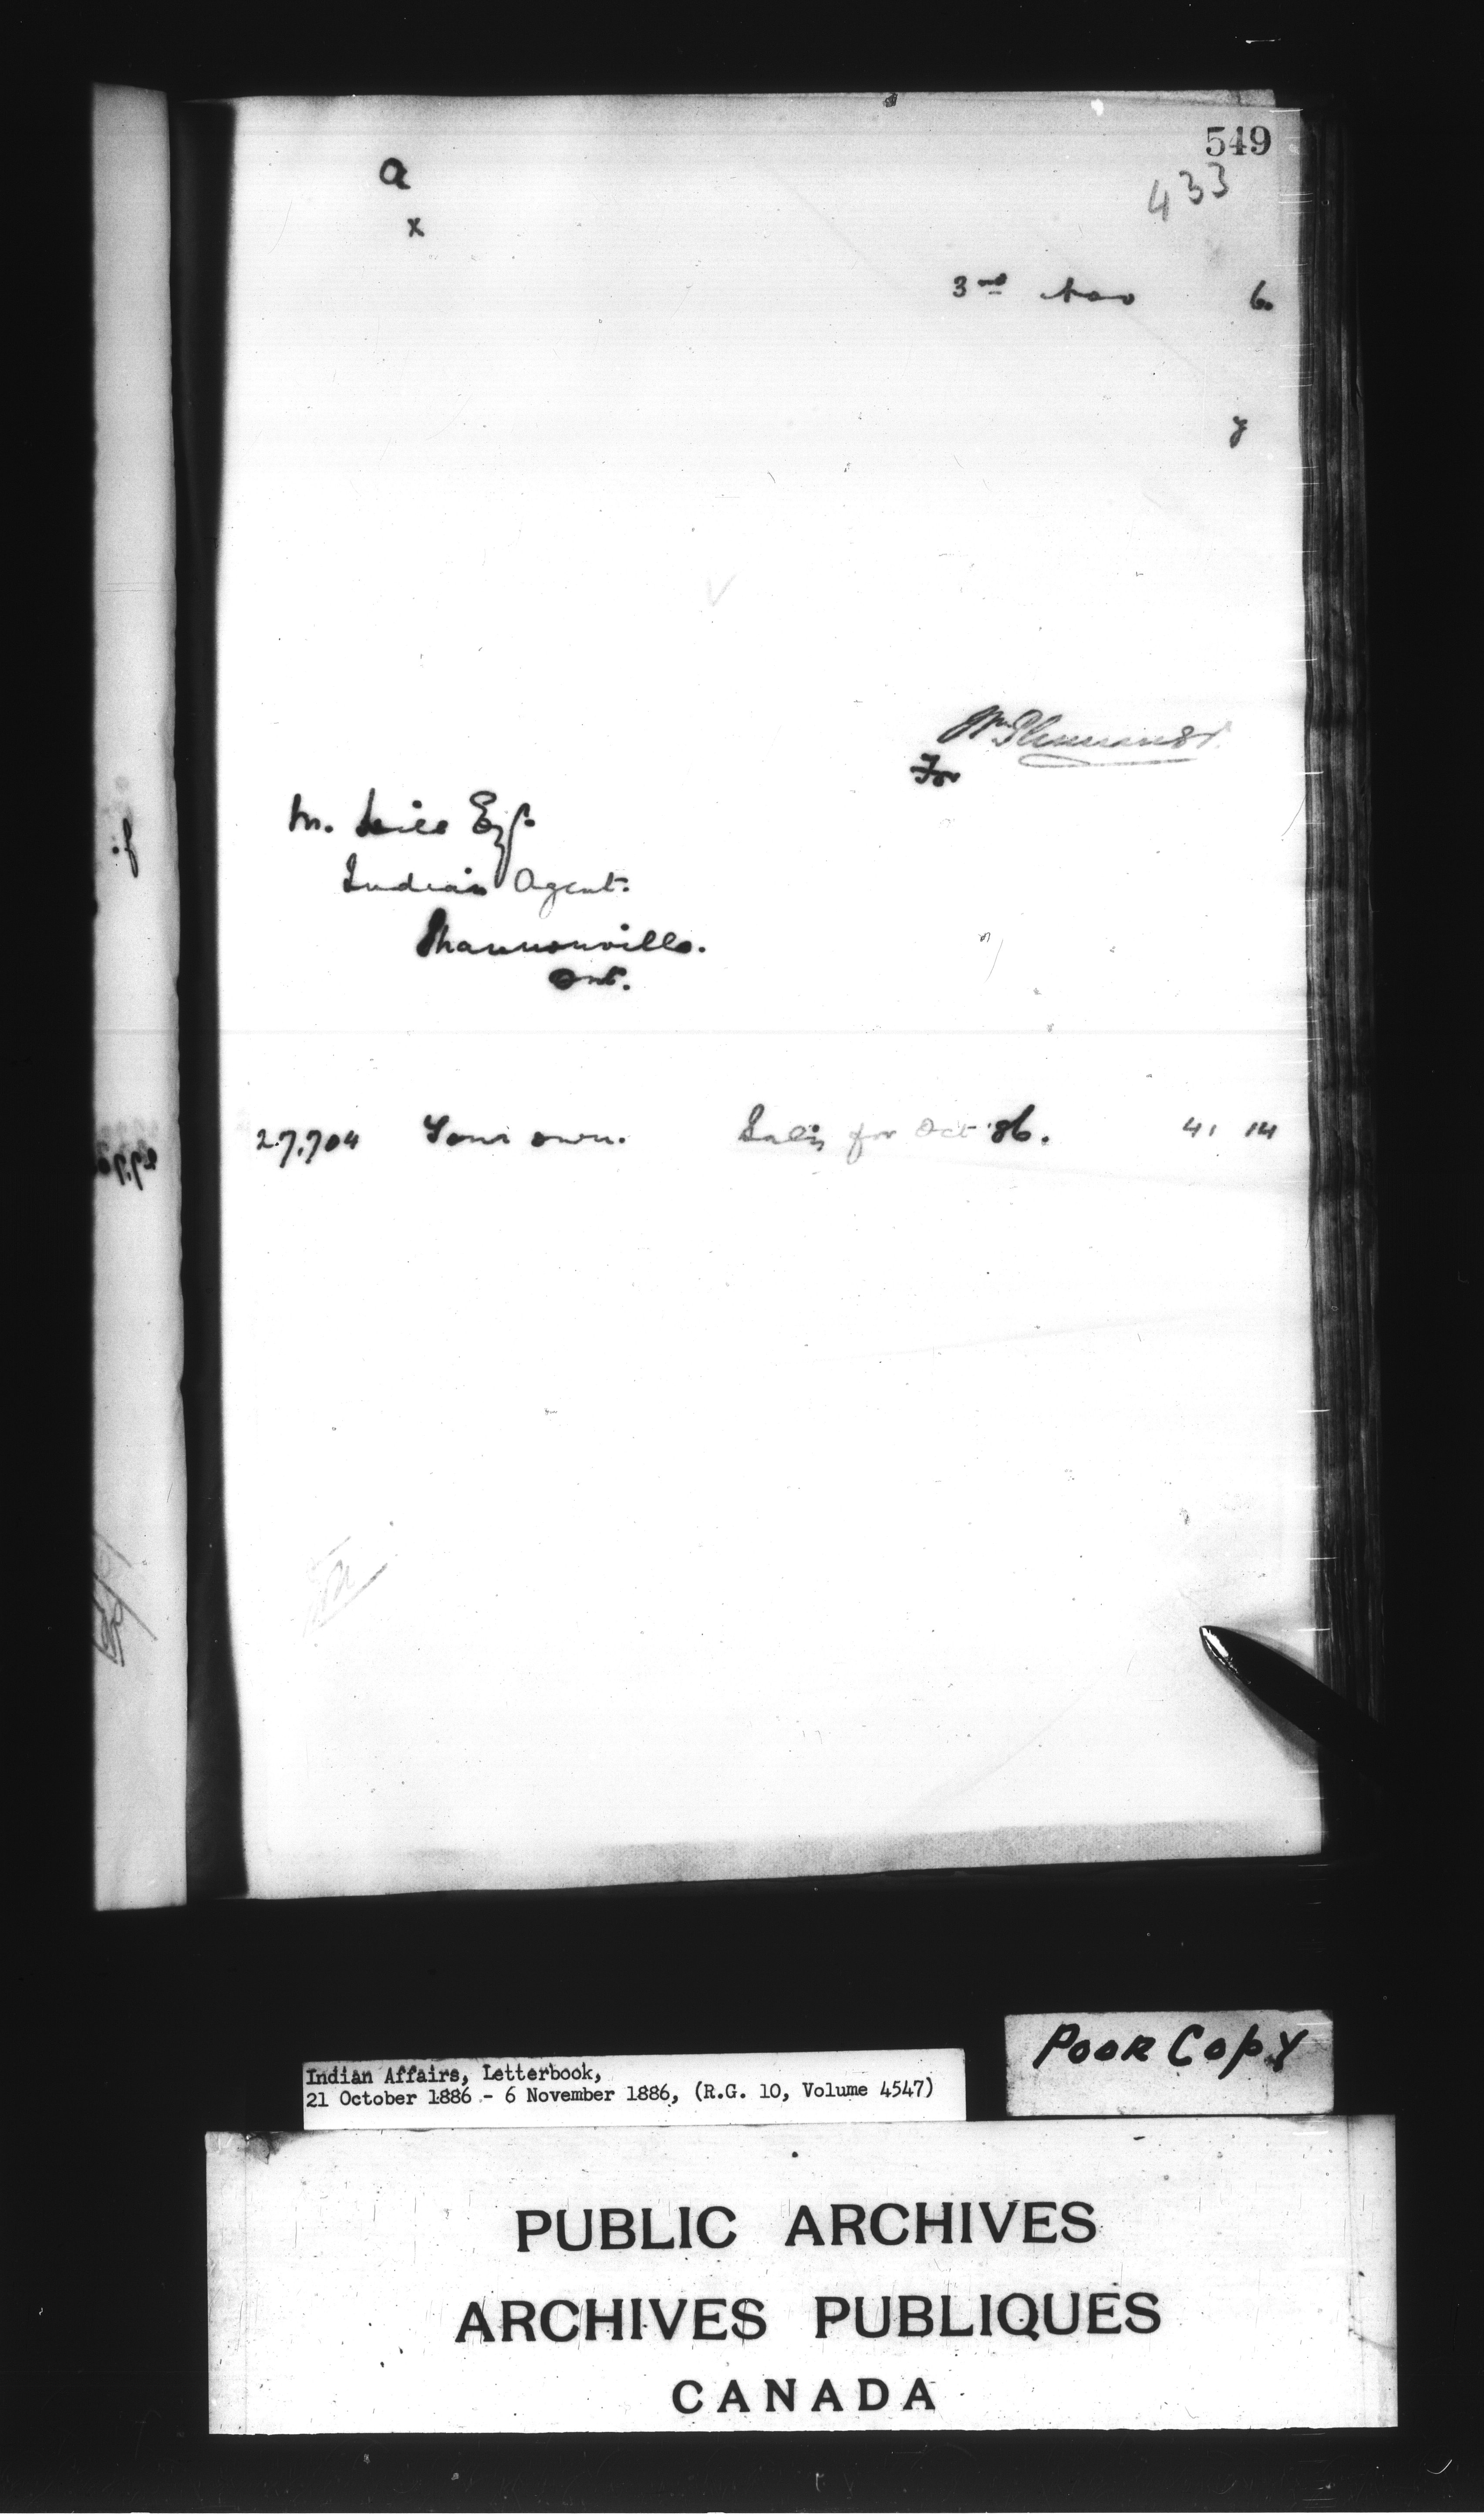 549
433
a
x
3rd Nov 6.
y
For
M. Hill Esq.
Indian Agent.
Shannonville.
Ont.
27,704 Your own. Saly for Oct '86. 41 14
POOR Copy
Indian Affairs, Letterbook,
21 October 1886 - 6 November 1886, (R.G. 10, Volume 4547)
PUBLIC ARCHIVES
ARCHIVES PUBLIQUES
CANADA